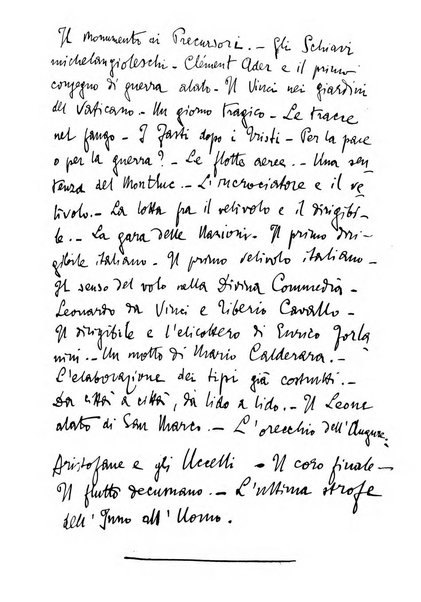 Il monumento ai Precursori. – Gli Schiavi
michelangioleschi – Clément Ader e il primo
congegno di guerra alato – Il Vinci nei giardini
del Vaticano – Un giorno tragico – Le tracce
nel fango – I Fasti dopo i Tristi – Per la pace
o per la guerra? – Le flotte aeree. – Una sen-
tenza del Montluc. – L'incrociatore e il ve-
livolo. – La lotta fra il velivolo e il dirigibi-
le. – La gara delle Nazioni. – Il primo diri-
gibile italiano. – Il primo velivolo italiano –
Il senso del volo nella Divina Commedia –
Leonardo da Vinci e Tiberio Cavallo. –
Il dirigibile e l'elicottero di Enrico Forla
nini. – Un motto di Mario Calderara. –
L'elaborazione dei tipi già costrutti. –
Da città a città, da lido a lido. – Il Leone
alato di San Marco. – L'orecchio dell'Augure.
Aristofane e gli Uccelli – Il coro finale –
Il flutto decumano. – L'ultima strofe
dell'Inno all'Uomo.